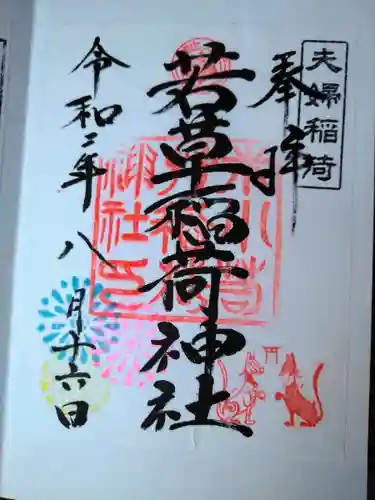 夫婦稲荷
奉拝
若草稲荷神社
令和二年八月十六日